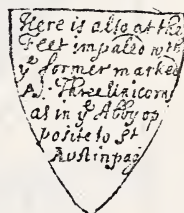 Here is also at the
Feet impaled wth
ye former marked
A5. Three Unicorns
as in ye Abby op
posite to St
Austin pag